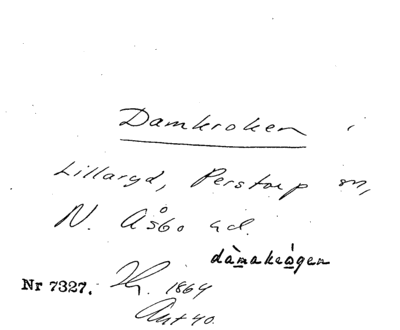 Damkroken i
Lillaryd, Perstorp sn,
N. Åsbo hd.
dàmakrògen
Nr 7327. 1864